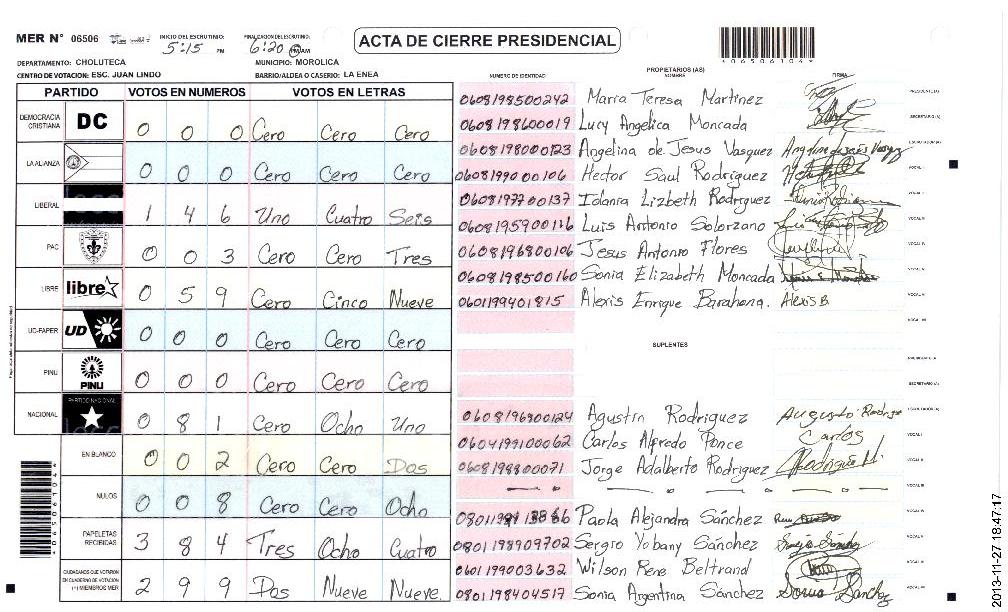 MER N° 06506
INICIO DEL ESCRUTINIO:
5:15 PM
FINALIZACION DEL ESCRUTINIO:
6:20 PM AM
ACTA DE CIERRE PRESIDENCIAL
4065061044
DEPARTAMENTO: CHOLUTECA
MUNICIPIO: MOROLICA
CENTRO DE VOTACION: ESC. JUAN LINDO
BARRIO/ALDEA O CASERIO: LA ENEA
PARTIDO VOTOS EN NUMEROS VOTOS EN LETRAS
DEMOCRACIA CRISTIANA DC 0 0 0 Cero Cero Cero
LA ALIANZA 0 0 0 Cero Cero Cero
LIBERAL 1 4 6 Uno Cuatro Seis
PAC 0 0 3 Cero Cero Tres
LIBRE libre 0 5 9 Cero Cinco Nueve
UD-FAPER UD 0 0 0 Cero Cero Cero
PINU PINU 0 0 0 Cero Cero Cero
NACIONAL PARTIDO NACIONAL 0 8 1 Cero Ocho Uno
EN BLANCO 0 0 2 Cero Cero Dos
NULOS 0 0 8 Cero Cero Ocho
PAPELETAS RECIBIDAS 3 8 4 Tres Ocho Cuatro
CIUDADANOS QUE VOTARON EN CUADERNO DE VOTACION (+) MIEMBROS MER 2 9 9 Dos Nueve Nueve
NUMERO DE IDENTIDAD
PROPIETARIOS (AS)
NOMBRE
FIRMA
0608198500242 Maria Teresa Martinez PRESIDENTE(A)
0608198600019 Lucy Angelica Moncada SECRETARIO(A)
0608198000123 Angelina de Jesus Vasquez Angelina de Jesus Vasquez ESCRUTADOR(A)
0608199000106 Hector Saul Rodriguez VOCAL I
0608197700137 Idania Lizbeth Rodriguez VOCAL II
0608195900116 Luis Antonio Solorzano VOCAL III
0608196800106 Jesus Antonio Flores VOCAL IV
0608198500160 Sonia Elizabeth Moncada VOCAL V
0601199401815 Alexis Enrique Barahona. Alexis B VOCAL VI
VOCAL VII
SUPLENTES
PRESIDENTE(A)
SECRETARIO(A)
0608196300124 Agustin Rodriguez ESCRUTADOR(A)
0604199100062 Carlos Alfredo Ponce Carlos VOCAL I
0608198800071 Jorge Adalberto Rodriguez Rodriguez M. VOCAL II
VOCAL III
Paola Alejandra Sánchez VOCAL IV
0801198909702 Sergio Yobany Sánchez VOCAL V
0601199003632 Wilson Rene Beltrand VOCAL VI
0801198404517 Sonia Argentina Sánchez Sonia Sanchez VOCAL VII
4065061044
2013-11-27 18:47:17